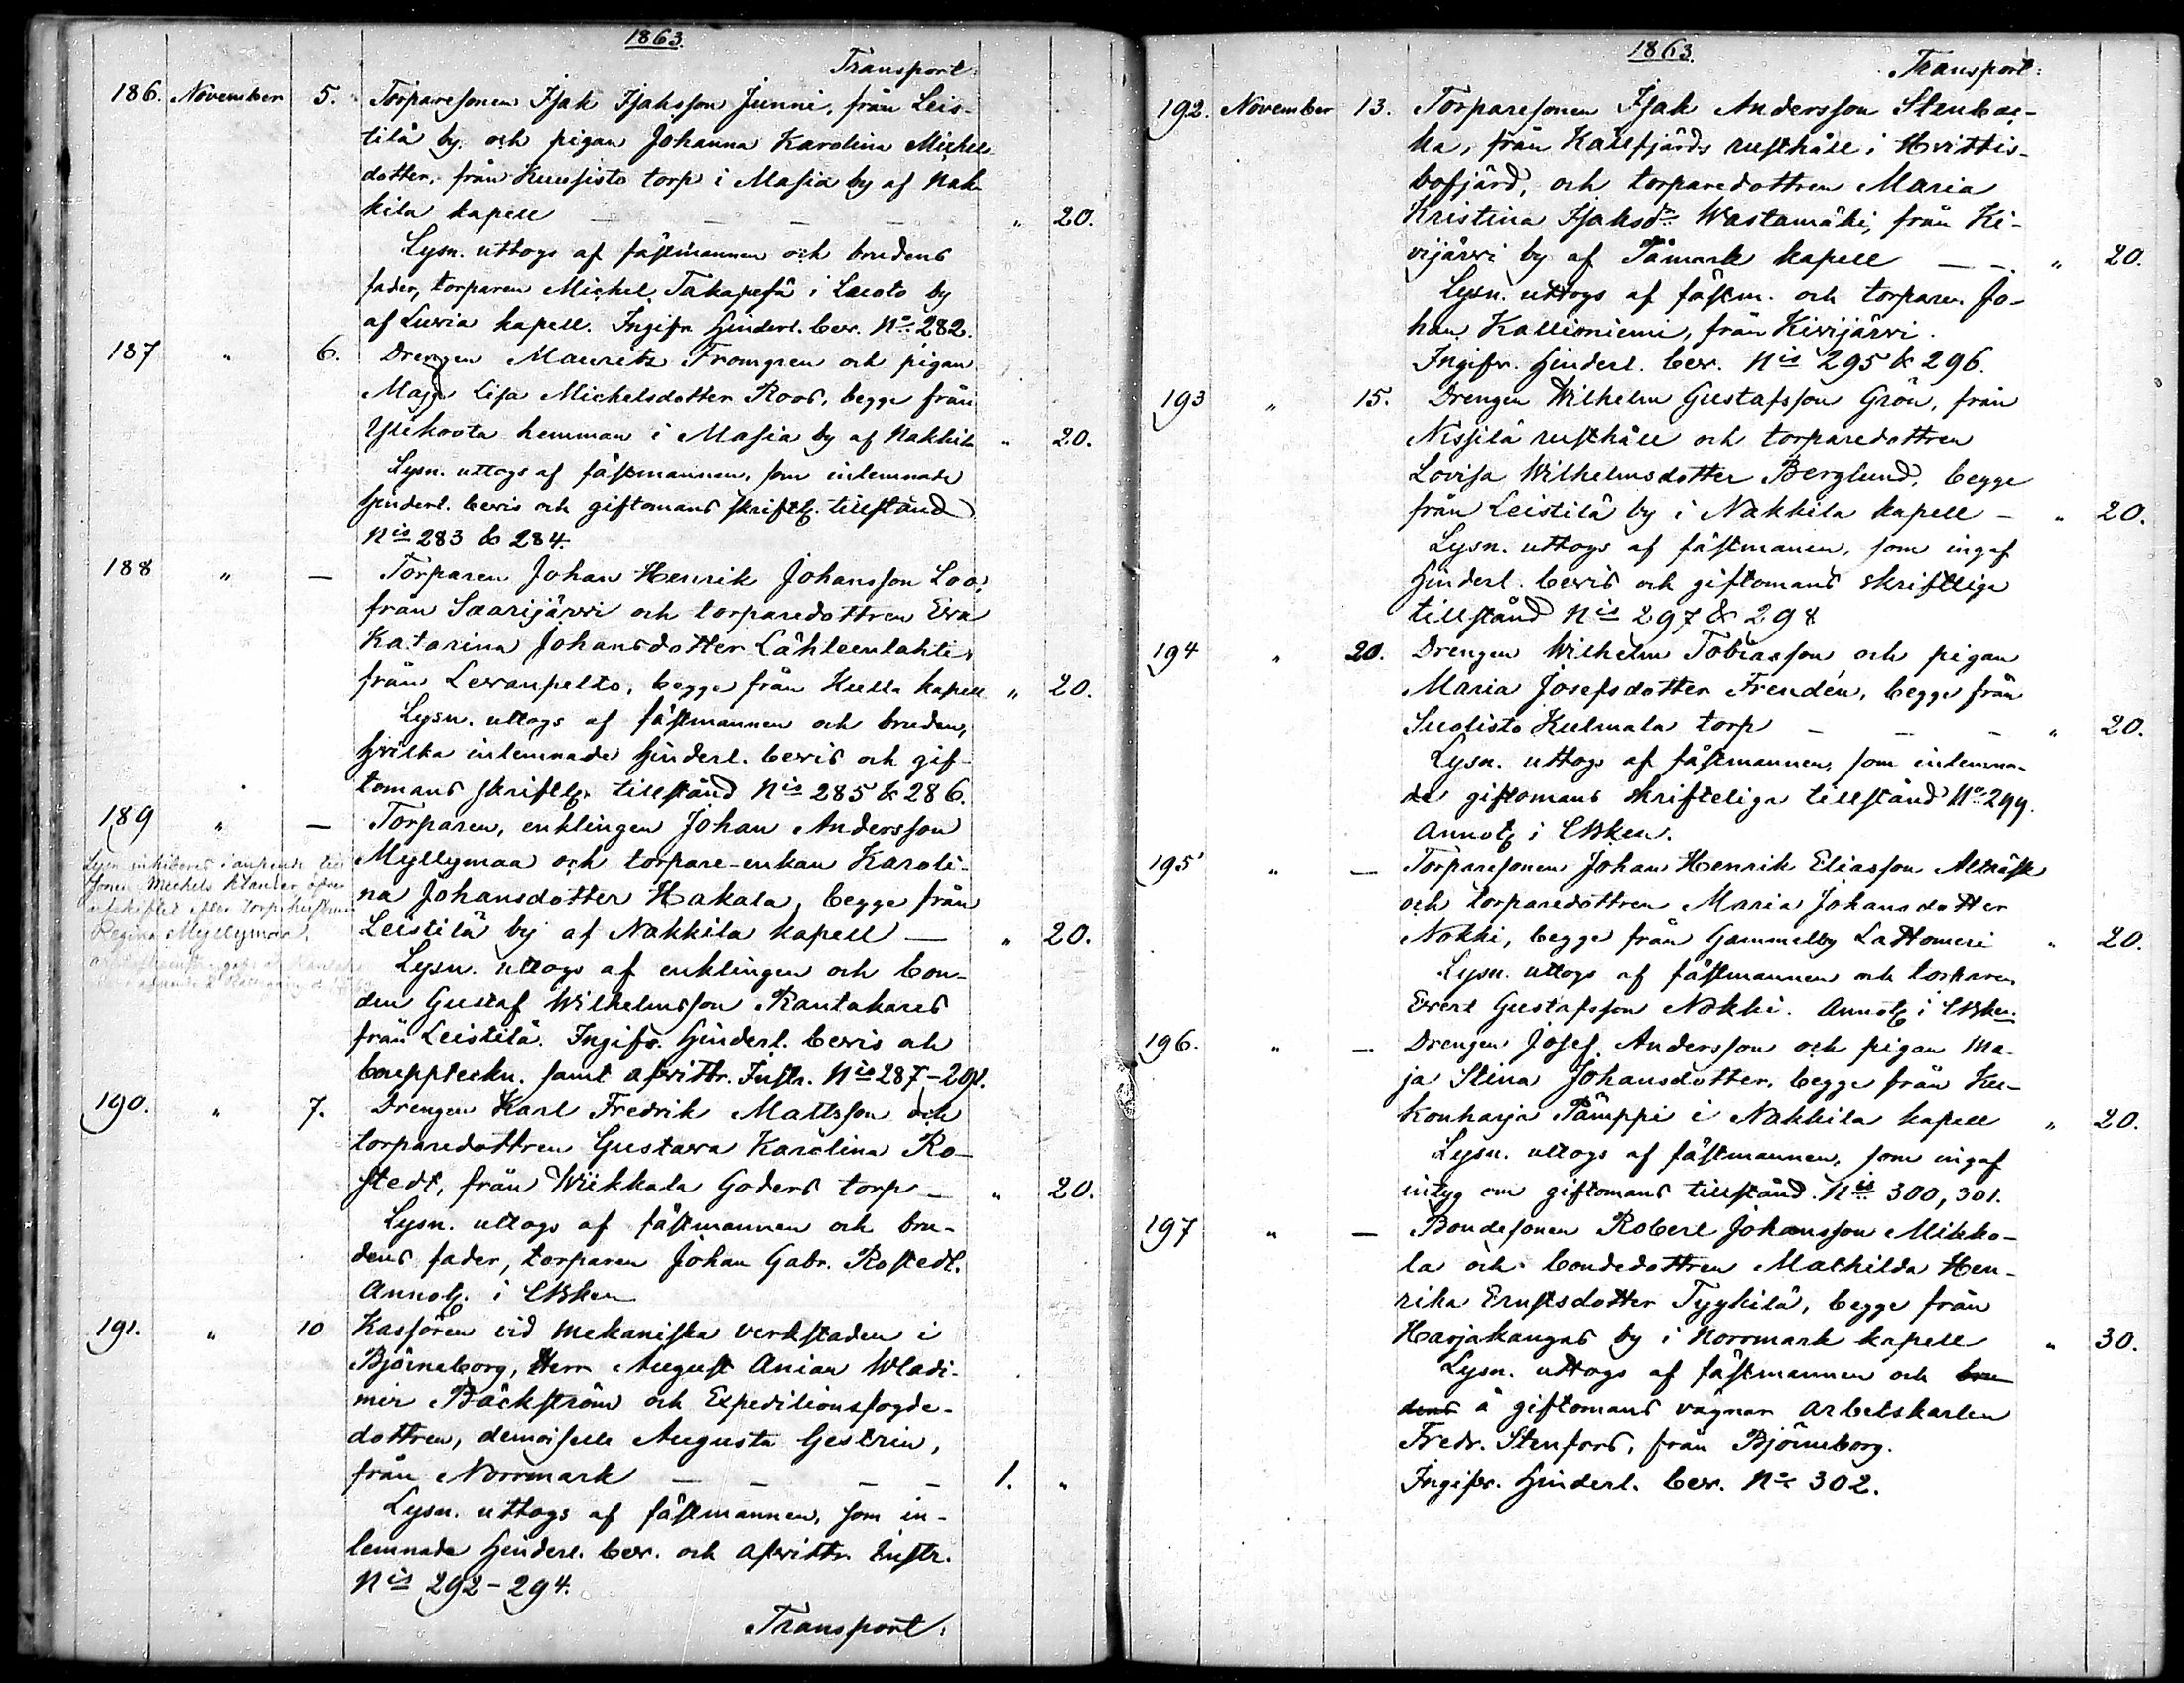 1863.
Transport:
186. November 5. Torparesonen Isak Isaksson Junni, från Leis-
tilä by, och pigan Johanna Karolina Michels
dotter, från Kuusisto torp i Masia by af Nak-
kila kapell — — — — „ 20.
Lysn. uttogs af fästmannen och brudens
fader, torparen Michel Takapesä i Luoto by
af Luvia kapell. Ingifv. hinderl. bev. No 282.
187 „ 6. Drengen Mauritz Fromgren och pigan
Maja Lisa Michelsdotter Roos, begge från
Ylikoota hemman i Masia by af Nakkila „ 20.
Lysn. uttogs af fästmannen, som inlemnade
hinderl. bevis och giftomans skriftlig. tillstånd
Nis 283 & 284.
188 „ — Torparen Johan Henrik Johansson Loo,
från Saarijärvi och torparedottren Eva
Katarina Johansdotter Lähteenlahti
från Levanpelto, begge från Kulla kapell „ 20.
Lysn. uttogs af fästmannen och bruden,
hvilka inlemnade hinderl. bevis och gif-
tomans skriftlig. tillstånd Nis 285 & 286.
189 „ — Torparen, enklingen Johan Andersson
Myllymaa och torpare-enkan Karoli-
na Johansdotter Hakala, begge från
Leistilä by af Nakkila kapell — „ 20.
Lysn. uttogs af enklingen och bon-
den Gustaf Wilhelmsson Rantakares
från Leistilä. Ingifv. hinderl. bevis och
bouppteckn. samt afvittr. Instr. Nis 287–291.
Lysn. inhiberes
Regina Myllymaa.
190. „ 7. Drengen Karl Fredrik Mattsson och
torparedottren Gustava Karolina Ro-
stedt, från Wiikkala Goders torp — „ 20.
Lysn. uttogs af fästmannen och bru-
dens fader, torparen Johan Gabr. Rostedt.
Annot. i CBken
191. „ 10 Kassören vid mekaniska verkstaden i
Björneborg, Herr August Anian Wladi-
mir Bäckström och Expeditionsfogde-
dottren, demoiselle Augusta Gestrin,
från Norrmark — — — — 1. „
Lysn. uttogs af fästmannen, som in-
lemnade hinderl. bev. och afvittr. Instr.
Nis 292–294.
Transport:
1863.
Transport:
192. November 13. Torparesonen Isak Andersson Stenbac-
ka, från Kallfjärds rusthåll i Hvittis-
bofjärd, och torparedottren Maria
Kristina Isaksdr Wastamäki, från Ki-
vijärvi by af Påmark kapell — —. „ 20.
Lysn. uttogs af fästm. och torparen Jo-
han Kallioniemi, från Kivijärvi.
Ingifv. hinderl. bev. Nis 295 & 296.
193 „ 15. Drengen Wilhelm Gustafsson Grön, från
Nissilä rusthåll och torparedottren
Lovisa Wilhelmsdotter Berglund, begge
från Leistilä by i Nakkila kapell — „ 20.
Lysn. uttogs af fästmannen, som ingaf
hinderl. bevis och giftomans skriftliga
tillstånd Nis 297 & 298
194 „ 20. Drengen Wilhelm Tobiasson och pigan
Maria Josefsdotter Frendén, begge från
Suolisto Kulmala torp — — — „ 20.
Lysn. uttogs af fästmannen, som inlemna-
de giftomans skrifteliga tillstånd No 299.
Annot. i CBken.
195 „ — Torparesonen Johan Henrik Eliasson Alträsk
och torparedottren Maria Johansdotter
Nokki, begge från Gammelby Lattomeri „ 20.
Lysn. uttogs af fästmannen och torparen
Evert Gustafsson Nokki. Annot. i CBken.
196. „ —. Drengen Josef Andersson och pigan Ma-
ja Stina Johansdotter, begge från Ku-
konharja Pämppi i Nakkila kapell „ 20.
Lysn. uttogs af fästmannen, som ingaf
intyg om giftomans tillstånd. Nis 300, 301.
197 „ — Bondesonen Robert Johansson Mikko-
la och bondedottren Mathilda Hen-
rika Ernstsdotter Tyykilä, begge från
Harjakangas by i Norrmark kapell „ 30.
Lysn. uttogs af fästmannen och bru
dens å giftomans vägnar arbetskarlen
Fredr. Stenfors, från Björneborg.
Ingifv. hinderl. bev. No 302.